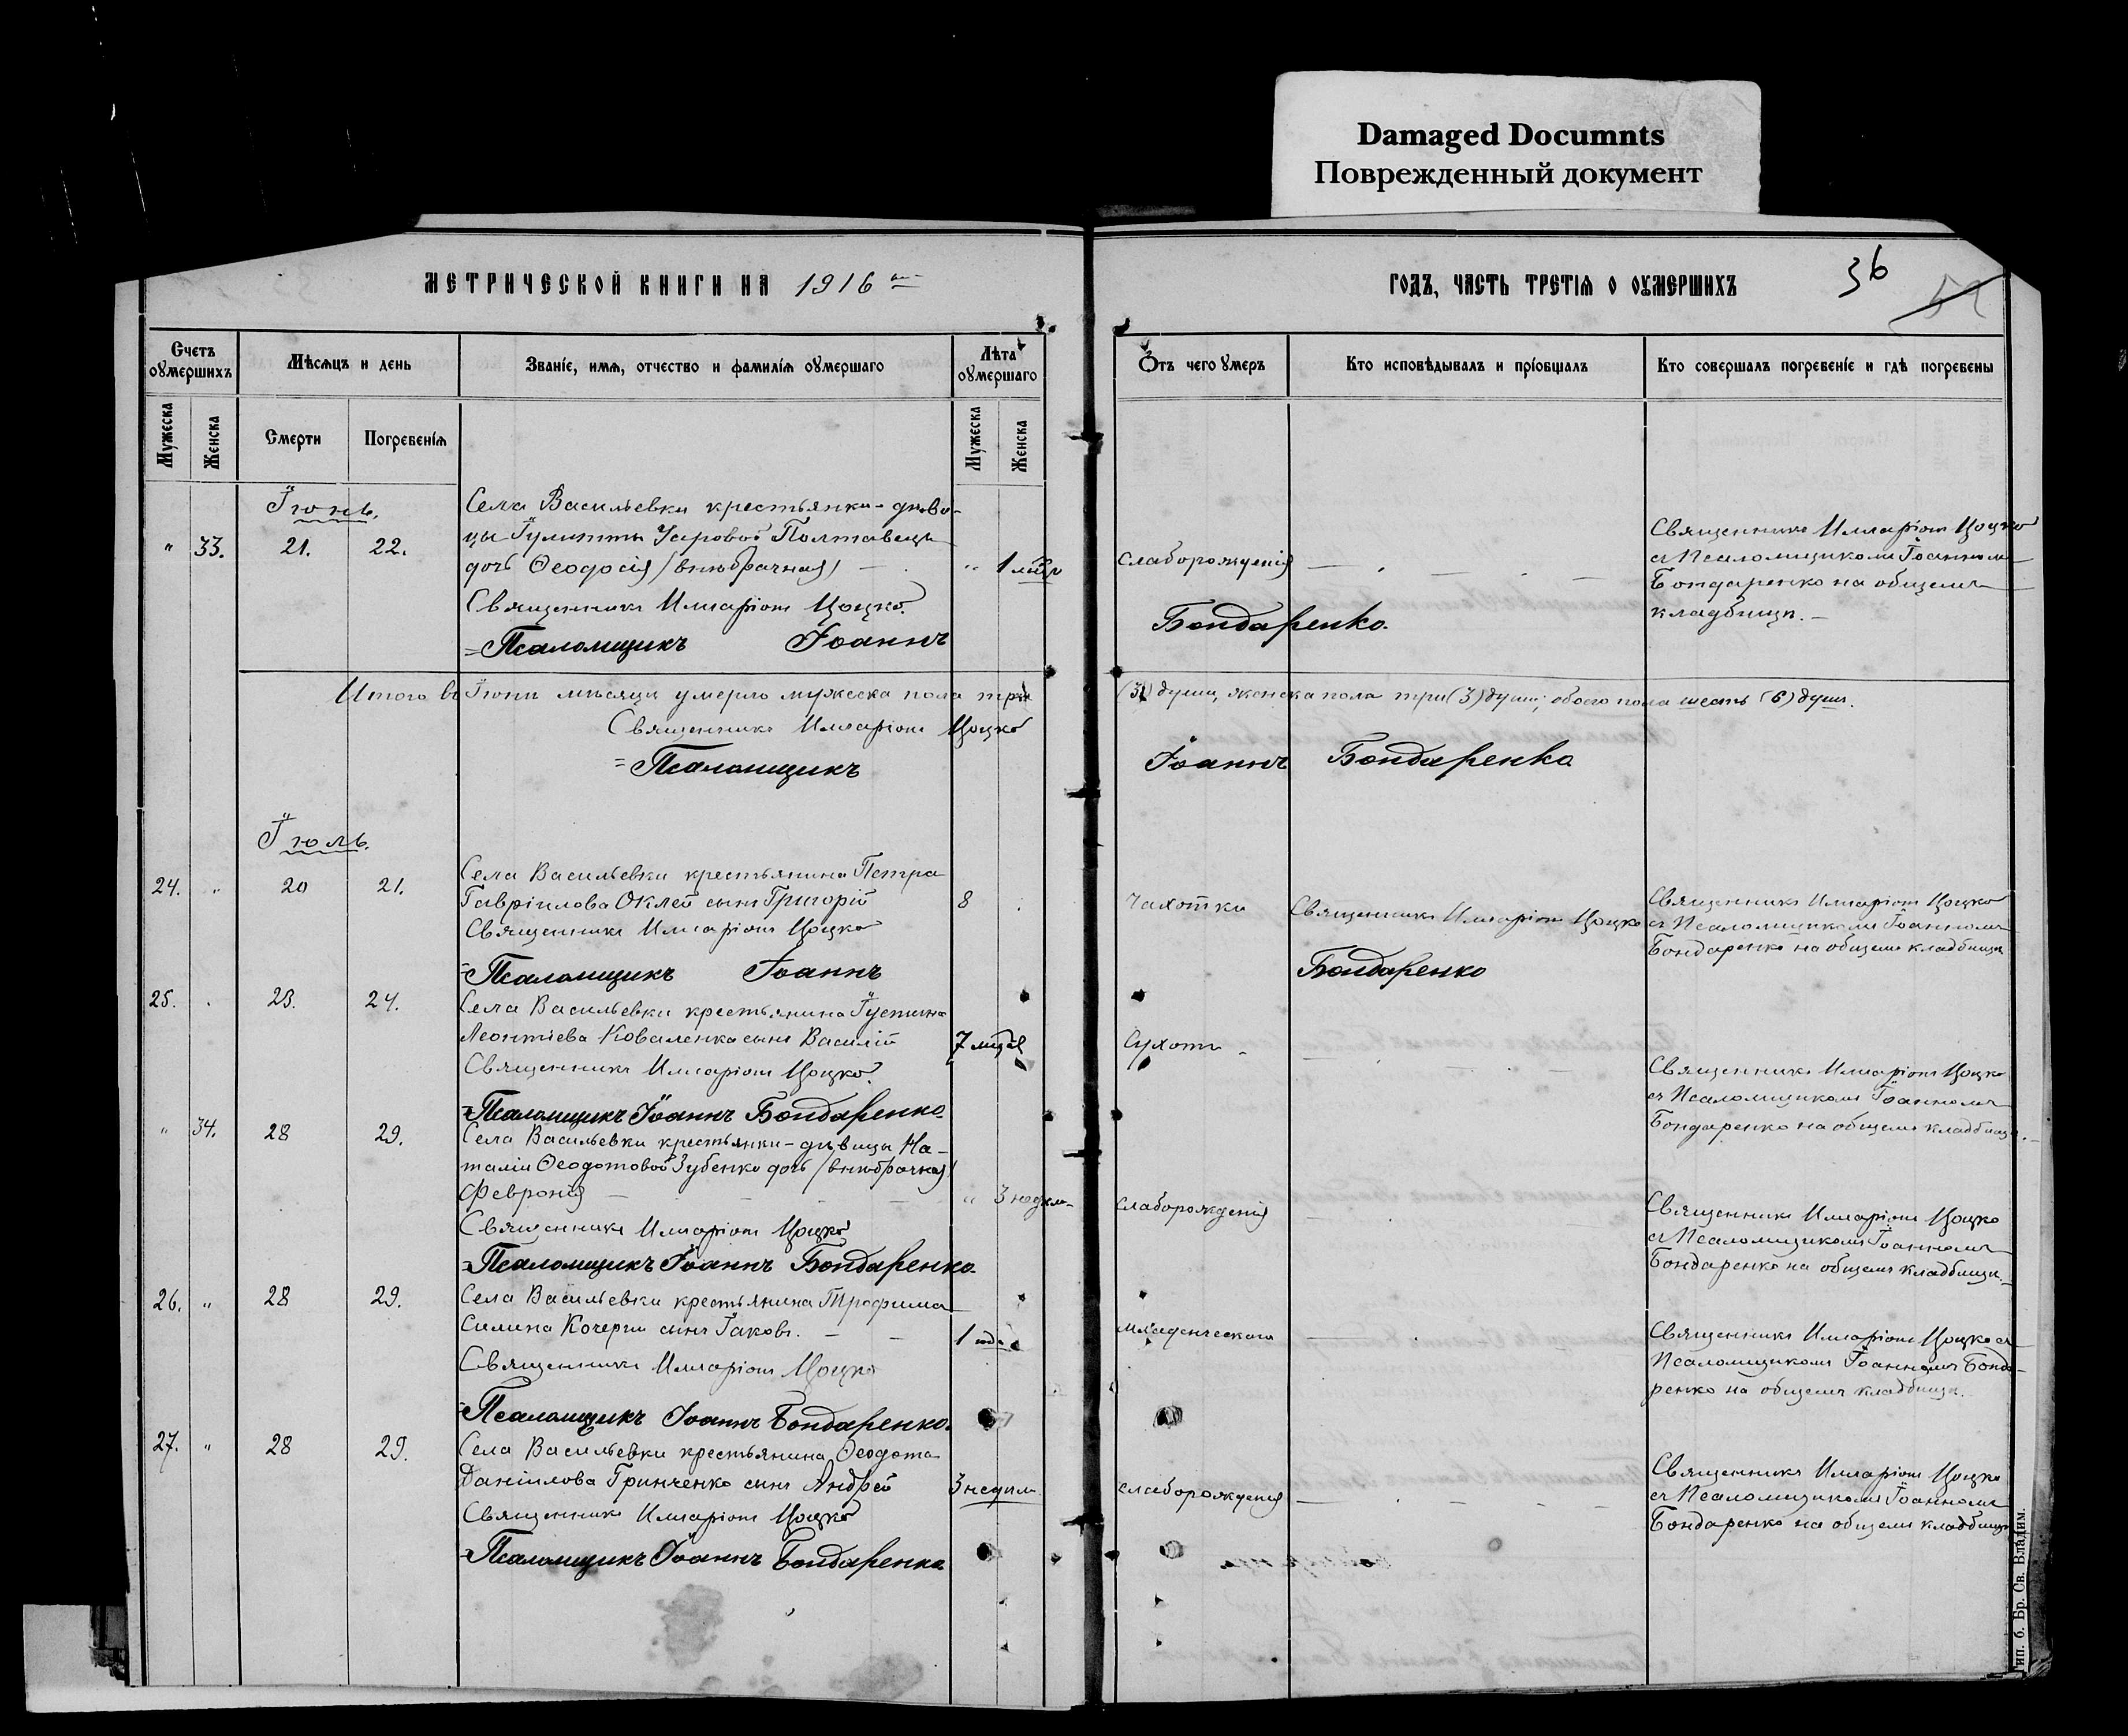 Damaged Documnts
Поврежденный документ
МЕТРИЧЕСКОЙ КНИГИ НА 1916
ГОДЪ, ЧАСТЬ ТРЕТІЯ О ОУМЕРШИХЪ
36
Счетъ оумершихъ
Мѣсяцъ и день
Званіе, имя, отчество и фамилія оумершаго
Лѣта оумершаго
Отъ чего умеръ
Кто исповѣдывалъ и пріобщалъ
Кто совершалъ погребеніе и гдѣ погребены
Мужеска
Женска
Смерти
Погребенія
Мужеска
Женска
Іюнь.
Села Васильевки крестьянки-дѣви-
" 33. 21. 22.
цы Іулитты Полтавецъ
дочь Ѳеодосія (внѣбрачная) " 1
слаборожденія
Священникъ Иларіонъ Цоцко
съ Псаломщикомъ Іоанномъ
Бондаренко на общемъ
кладбищѣ.
Священникъ Иларіонъ Цоцко.
=Псаломщикъ Іоаннъ Бондаренко.
Итого въ Іюнѣ мѣсяцѣ умерло мужеска пола три (3) души, женска пола три (3) души, обоего пола шесть (6) душъ.
Священникъ Иларіонъ Цоцко
=Псаломщикъ Іоаннъ Бондаренко
Іюль.
24. " 20 21.
Села Васильевки крестьянина Петра
Гавріилова Оклей сынъ Григорій 8
Чахотки
Священникъ Иларіонъ Цоцко
Священникъ Иларіонъ Цоцко
съ Псаломщикомъ Іоанномъ
Бондаренко на общемъ кладбищѣ
Священникъ Иларіонъ Цоцко
=Псаломщикъ Іоаннъ Бондаренко
25. 23. 24.
Села Васильевки крестьянина Іустина
Леонтіева Коваленка сынъ Василій 7
Сухоты
Священникъ Иларіонъ Цоцко
съ Псаломщикомъ Іоанномъ
Бондаренко на общемъ кладбищѣ.
Священникъ Иларіонъ Цоцко.
=Псаломщикъ Іоаннъ Бондаренко.
" 34. 28 29.
Села Васильевки крестьянки-дѣвицы На-
таліи Ѳеодотовой Зубенко дочь (внѣбрачная)
Февронія " 3 недѣл.
слаборожденія
Священникъ Иларіонъ Цоцко
съ Псаломщикомъ Іоанномъ
Бондаренко на общемъ кладбищѣ.
Священникъ Иларіонъ Цоцко
=Псаломщикъ Іоаннъ Бондаренко.
26. " 28 29.
Села Васильевки крестьянина Трофима
Силина Кочерги сынъ Іаковъ. 1 года
младенческаго
Священникъ Иларіонъ Цоцко съ
Псаломщикомъ Іоанномъ Бонда-
ренко на общемъ кладбищѣ.
Священникъ Иларіонъ Цоцко
=Псаломщикъ Іоаннъ Бондаренко.
27. " 28 29.
Села Васильевки крестьянина Ѳеодота
Даніилова Гринченко сынъ Андрей 3 недѣли
слаборожденія
Священникъ Иларіонъ Цоцко
съ Псаломщикомъ Іоанномъ
Бондаренко на общемъ кладбищѣ
Священникъ Иларіонъ Цоцко
=Псаломщикъ Іоаннъ Бондаренко
Тип. б. Бр. Св. Владим.